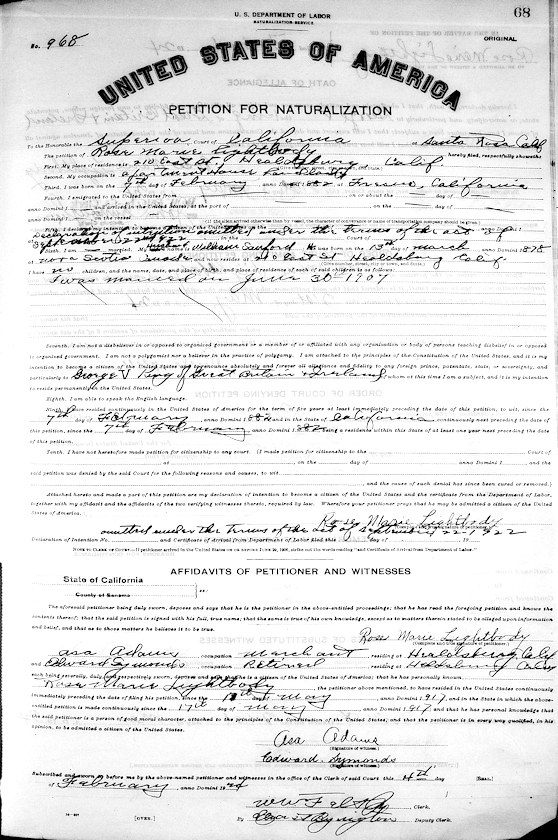 U. S. DEPARTMENT OF LABOR
NATURALIZATION SERVICE
68
No. 968
ORIGINAL
UNITED STATES OF AMERICA
PETITION FOR NATURALIZATION
To the Honorable the Superior court of California at Santa Rosa Calif
The petition of Rose Marie Lightbody hereby filed, respectfully showeth:
First. My place of residence is 210 East St, Healdsburg Calif
Second. My occupation is apartment House
Third. I was born on the 7th day of February anno Domini 1882 at Fresno, California
Fourth. I emigrated to the United States from on or about the day of
anno Domini 1 and arrived in the United States, at the port of on the day of
anno Domini 1 on the vessel
(If the alien arrived otherwise than by vessel, the character of conveyance or name of transportation company should be given.)
omitted under the terms of the act
September 22 1922
William Seaford He was born on the 13th day of March anno Domini 1878
at Nova Scotia and now resides at 210 East St Healdsburg Calif
I have no children, and the name, date, and place of birth, and place of residence of each of said children is as follows:
I was married on June 30th 1907
Seventh. I am not a disbeliever in or opposed to organized government or a member of or affiliated with any organization or body of persons teaching disbelief in or opposed
to organized government. I am not a polygamist nor a believer in the practice of polygamy. I am attached to the principles of the Constitution of the United States, and it is my
intention to become a citizen of the United States and to renounce absolutely and forever all allegiance and fidelity to any foreign prince, potentate, state, or sovereignty, and
particularly to George V King of Great Britain & Ireland of whom at this time I am a subject, and it is my intention
to reside permanently in the United States.
Eighth. I am able to speak the English language.
Ninth. I have resided continuously in the United States of America for the term of five years at least immediately preceding the date of this petition, to wit, since the
7th day of February anno Domini 1882 and in the State of California continuously next preceding the date of
this petition, since the 7th day of February anno Domini 1882 being a residence within this State of at least one year next preceding the date
of this petition.
Tenth. I have not heretofore made petition for citizenship to any court. (I made petition for citizenship to the Court of
at on the day of anno Domini 1 and the
said petition was denied by the said Court for the following reasons and causes, to wit,
and the cause of such denial has since been cured or removed.)
Attached hereto and made a part of this petition are my declaration of intention to become a citizen of the United States and the certificate from the Department of Labor,
together with my affidavit and the affidavits of the two verifying witnesses thereto, required by law. Wherefore your petitioner prays that he may be admitted a citizen of the United
States of America.
Rose Marie Lightbody
(Complete and true signature of petitioner.)
omitted under the terms of the act of September 22-1922
Declaration of Intention No. and Certificate of Arrival from Department of Labor filed this day of 19
NOTE TO CLERK OF COURT.—If petitioner arrived in the United States on or before JUNE 29, 1906, strike out the words reading "and Certificate of Arrival from Department of Labor."
AFFIDAVITS OF PETITIONER AND WITNESSES
State of California
County of Sonoma ss:
The aforesaid petitioner being duly sworn, deposes and says that he is the petitioner in the above-entitled proceedings; that he has read the foregoing petition and knows the
contents thereof; that the said petition is signed with his full, true name; that the same is true of his own knowledge, except as to matters therein stated to be alleged upon information
and belief, and that as to those matters he believes it to be true.
Rose Marie Lightbody
(Complete and true signature of petitioner.)
Asa Adams occupation Merchant residing at Healdsburg Calif
and Edward Symonds occupation Retired residing at Healdsburg Calif
each being severally, duly, and respectively sworn, deposes and says that he is a citizen of the United States of America; that he has personally known
Rose Marie Lightbody the petitioner above mentioned, to have resided in the United States continuously
immediately preceding the date of filing his petition, since the 17th day of May anno Domini 1917 and in the State in which the above-
entitled petition is made continuously since the 17th day of May anno Domini 1917 and that he has personal knowledge that
the said petitioner is a person of good moral character, attached to the principles of the Constitution of the United States, and that the petitioner is in every way qualified, in his
opinion, to be admitted a citizen of the United States.
Asa Adams
(Signature of witness.)
Edward Symonds
(Signature of witness.)
Subscribed and sworn to before me by the above-named petitioner and witnesses in the office of the Clerk of said Court this 4th day
of February, anno Domini 1924
[SEAL.]
Clerk.
[OVER.]
By Deputy Clerk.